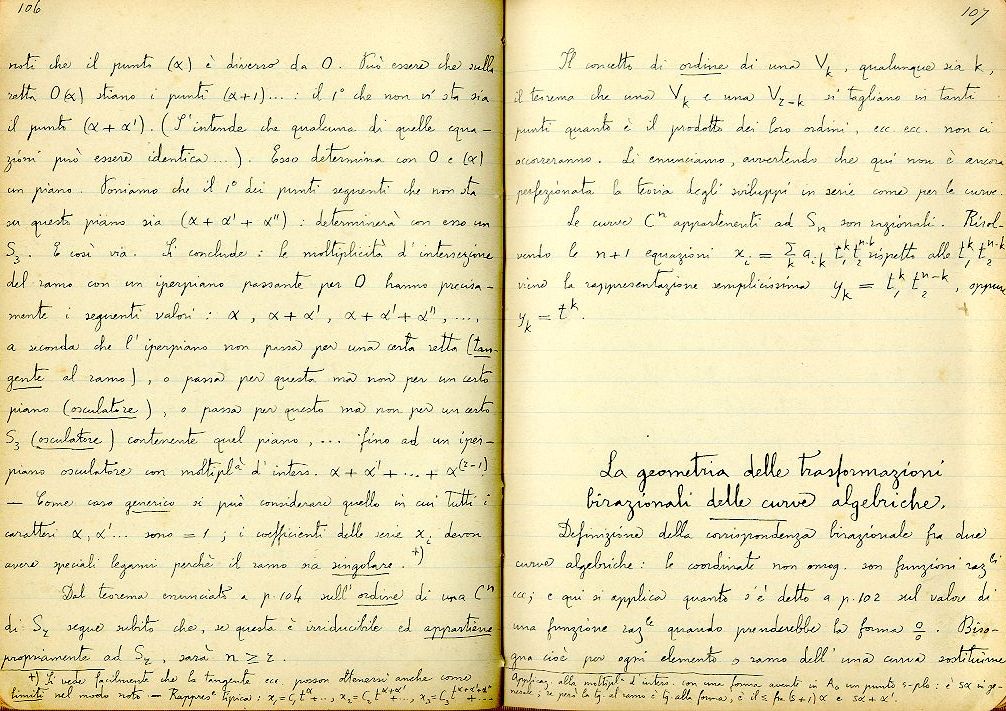 106
noti che il punto (α) è diverso da O. Può essere che sulla
retta O(α) stiano i punti (α+1)... : il 1° che non vi sta sia
il punto (α + α'). (S'intende che qualcuna di quelle equa-
zioni può essere identica ...). Esso determina con O e (α)
un piano. Poniamo che il 1° dei punti seguenti che non sta
su questo piano sia (α + α' + α'') : determinerà con esso un
S₃. E così via. Si conclude : le moltiplicità d'intersezione
del ramo con un iperpiano passante per O hanno precisa-
mente i seguenti valori : α, α + α', α + α' + α'', ...,
a seconda che l'iperpiano non passa per una certa retta (tan-
gente al ramo), o passa per questa ma non per un certo
piano (osculatore), o passa per questo ma non per un certo
S₃ (osculatore) contenente quel piano, ... fino ad un iper-
piano osculatore con moltipl.ᵃ d'inters. α + α' + ... + α⁽ʳ⁻¹⁾
— Come caso generico si può considerare quello in cui tutti i
caratteri α, α'... sono = 1 ; i coefficienti delle serie xᵢ devon
avere speciali legami perchè il ramo sia singolare. +)
Dal teorema enunciato a p. 104 sull'ordine di una Cⁿ
di Sᵣ segue subito che, se questa è irriducibile ed appartiene
propriamente ad Sᵣ, sarà n ≥ r.
+) Si vede facilmente che la tangente ecc. posson ottenersi anche come
limiti nel modo noto. — Rappres.ᵉ tipica : x₁=c₁t^α+..., x₂=c₂t^(α+α')+..., x₃=c₃t^(α+α'+α'')+...
107
Il concetto di ordine di una Vₖ, qualunque sia k,
il teorema che una Vₖ e una Vᵣ₋ₖ si tagliano in tanti
punti quanto è il prodotto dei loro ordini, ecc. ecc. non ci
occorreranno. Li enunciamo, avvertendo che qui non è ancora
perfezionata la teoria degli sviluppi in serie come per le curve.
Le curve Cⁿ appartenenti ad Sₙ son razionali. Risol-
vendo le n+1 equazioni xᵢ = Σₖ aᵢₖ t₁ᵏ t₂ⁿ⁻ᵏ rispetto alle t₁ᵏ t₂ⁿ⁻ᵏ
viene la rappresentazione semplicissima yₖ = t₁ᵏ t₂ⁿ⁻ᵏ, oppure
yₖ = tᵏ.
La geometria delle trasformazioni
birazionali delle curve algebriche.
Definizione della corrispondenza birazionale fra due
curve algebriche : le coordinate non omog. son funzioni raz.ˡⁱ
ecc; e qui si applica quanto s'è detto a p. 102 sul valore di
una funzione raz.ˡᵉ quando prenderebbe la forma 0/0. Biso-
gna cioè per ogni elemento o ramo dell'una curva sostituire
alla multipl.ᵃ d'inters. con una forma avente in A₀ un punto s-plo : è sα in ge-
nerale ; se però la tg. al ramo è tg. alla forma, è il